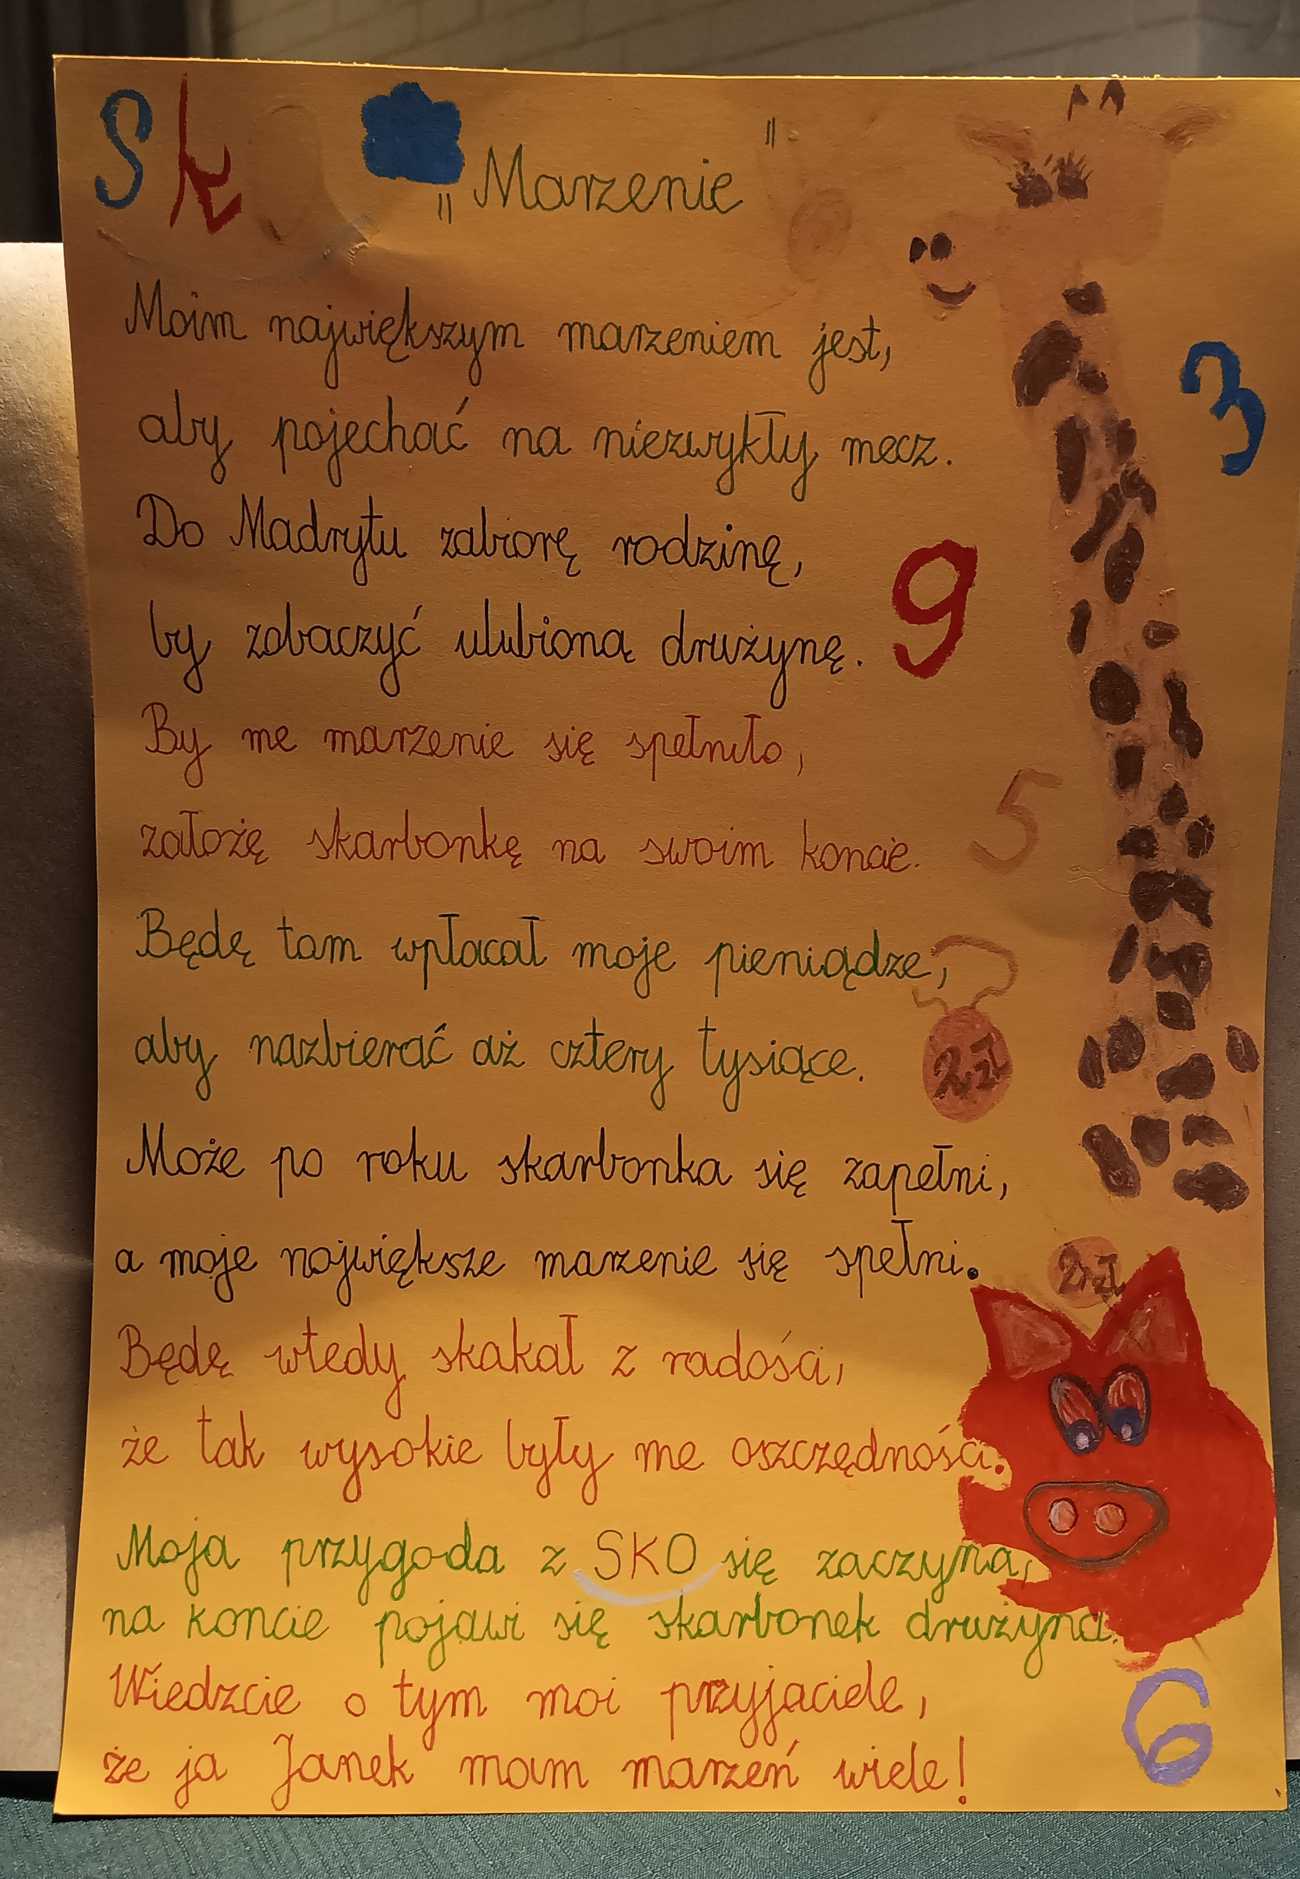 Sk
"Marzenie"
Moim największym marzeniem jest,
aby pojechać na niezwykły mecz.
3
Do Madrytu zabiorę rodzinę,
9
by zobaczyć ulubioną drużynę.
By me marzenie się spełniło,
5
założę skarbonkę na swoim koncie.
Będę tam wpłacał moje pieniądze,
aby nazbierać aż cztery tysiące.
2 zł
Może po roku skarbonka się zapełni,
a moje największe marzenie się spełni.
2 zł
Będę wtedy skakał z radości,
że tak wysokie były me oszczędności.
Moja przygoda z SKO się zaczyna,
na koncie pojawi się skarbonek drużyna.
Wiedzcie o tym moi przyjaciele,
6
że ja Janek mam marzeń wiele!